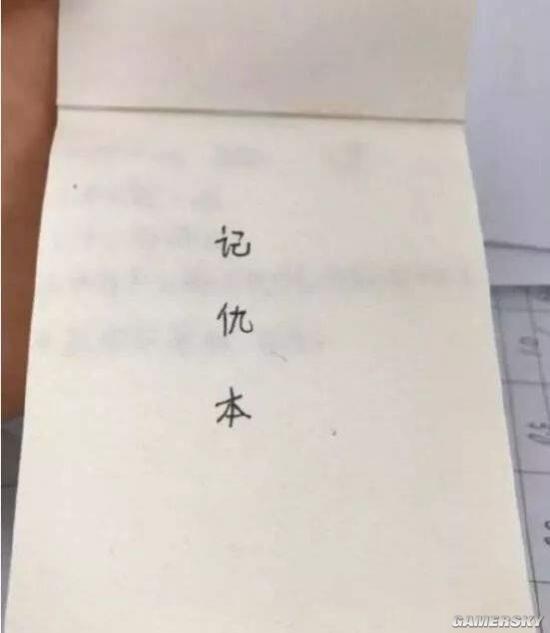 记
仇
本
GAMERSKY